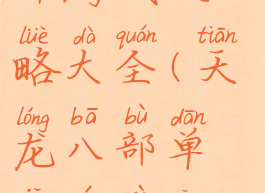 lüè dà quán tiān
略大全(天
lóng bā bù dān
龙八部单